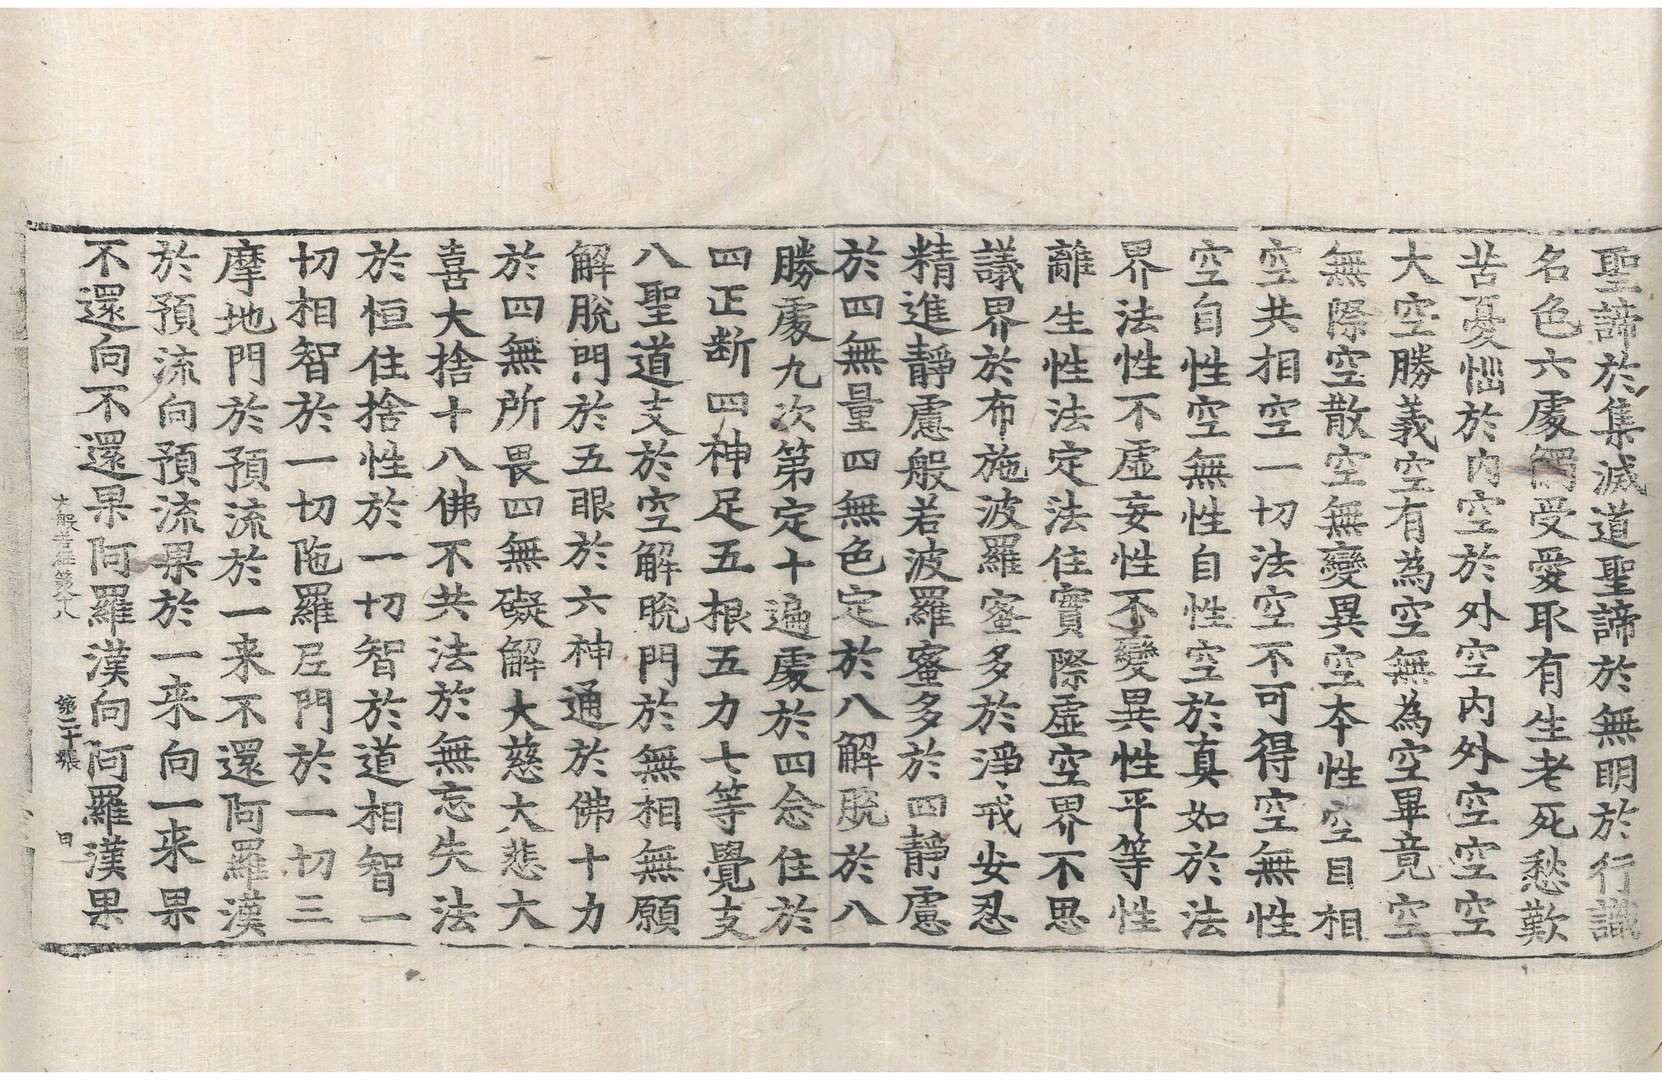 聖諦於集滅道聖諦於無明於行識
名色六處觸受愛取有生老死愁歎
苦憂惱於內空於外空內外空空空
大空勝義空有為空無為空畢竟空
無際空散空無變異空本性空自相
空共相空一切法空不可得空無性
空自性空無性自性空於真如於法
界法性不虛妄性不變異性平等性
離生性法定法住實際虛空界不思
議界於布施波羅蜜多於淨戒安忍
精進靜慮般若波羅蜜多於四靜慮
於四無量四無色定於八解脫於八
勝處九次第定十遍處於四念住於
四正断四神足五根五力七等覺支
八聖道支於空解脫門於無相無願
解脫門於五眼於六神通於佛十力
於四無所畏四無礙解大慈大悲大
喜大捨十八佛不共法於無忘失法
於恒住捨性於一切智於道相智一
切相智於一切陁羅尼門於一切三
摩地門於預流於一来不還阿羅漢
於預流向預流果於一来向一来果
不還向不還果阿羅漢向阿羅漢果
大般若經第六八 第二十張